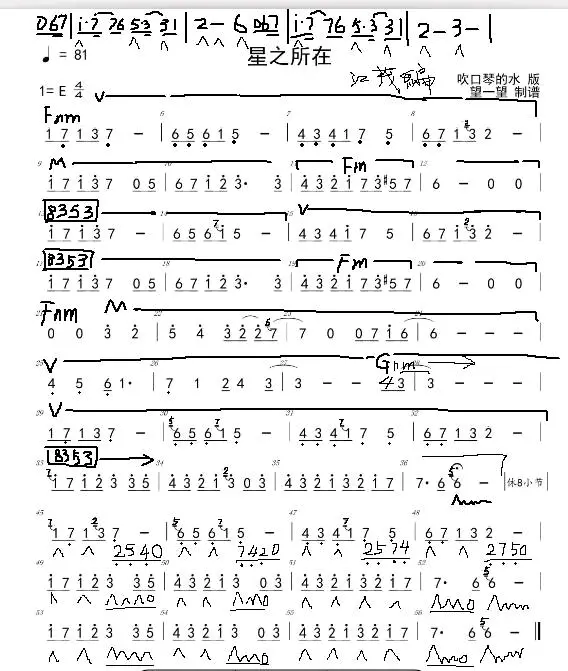 067 | i·7 76 5·3 31 | 2 - 6 067 | i·7 76 5·3 31 | 2 - 3 -
♩ = 81
星之所在
吹口琴的水 版
1= E 4/4
望一望 制谱
V
Fnm
1 7 1 3 7 - | 6 5 6 1 5 - | 4 3 4 1 7 5 | 6 7 1 3 2 - |
M
Fm
1 7 1 3 7 0 5 | 6 7 1 2 3· 3 | 4 3 2 1 7 3 #5 7 | 6 - 0 0 |
8353
V
1 7 1 3 7 - | 6 5 6 1 5 - | 4 3 4 1 7 5 | 6 7 1 3 2 - |
8353
Fm
1 7 1 3 7 0 5 | 6 7 1 2 3· 3 | 4 3 2 1 7 3 #5 7 | 6 - 0 0 |
Fnm
M
0 0 3 2 | 5 4 3 2 2 7 | 7 0 0 7 1 6 | 6 - - - |
V
Gnm
4 5 6 1· | 7 1 2 4 3 | 3 - - 4 3 | 3 - - - |
V
1 7 1 3 7 - | 6 5 6 1 5 - | 4 3 4 1 7 5 | 6 7 1 3 2 - |
8353
1 7 1 2 3 3 5 | 4 3 2 1 3 0 3 | 4 3 2 1 3 2 1 7 | 7· 6 6 - | 休8小节
1 7 1 3 7 - | 6 5 6 1 5 - | 4 3 4 1 7 5 | 6 7 1 3 2 - |
2540
7420
2574
2750
1 7 1 2 3 3 5 | 4 3 2 1 3 0 3 | 4 3 2 1 3 2 1 7 | 7· 6 6 - |
1 7 1 2 3 3 5 | 4 3 2 1 3 0 3 | 4 3 2 1 3 2 1 7 | 7· 6 6 - ‖